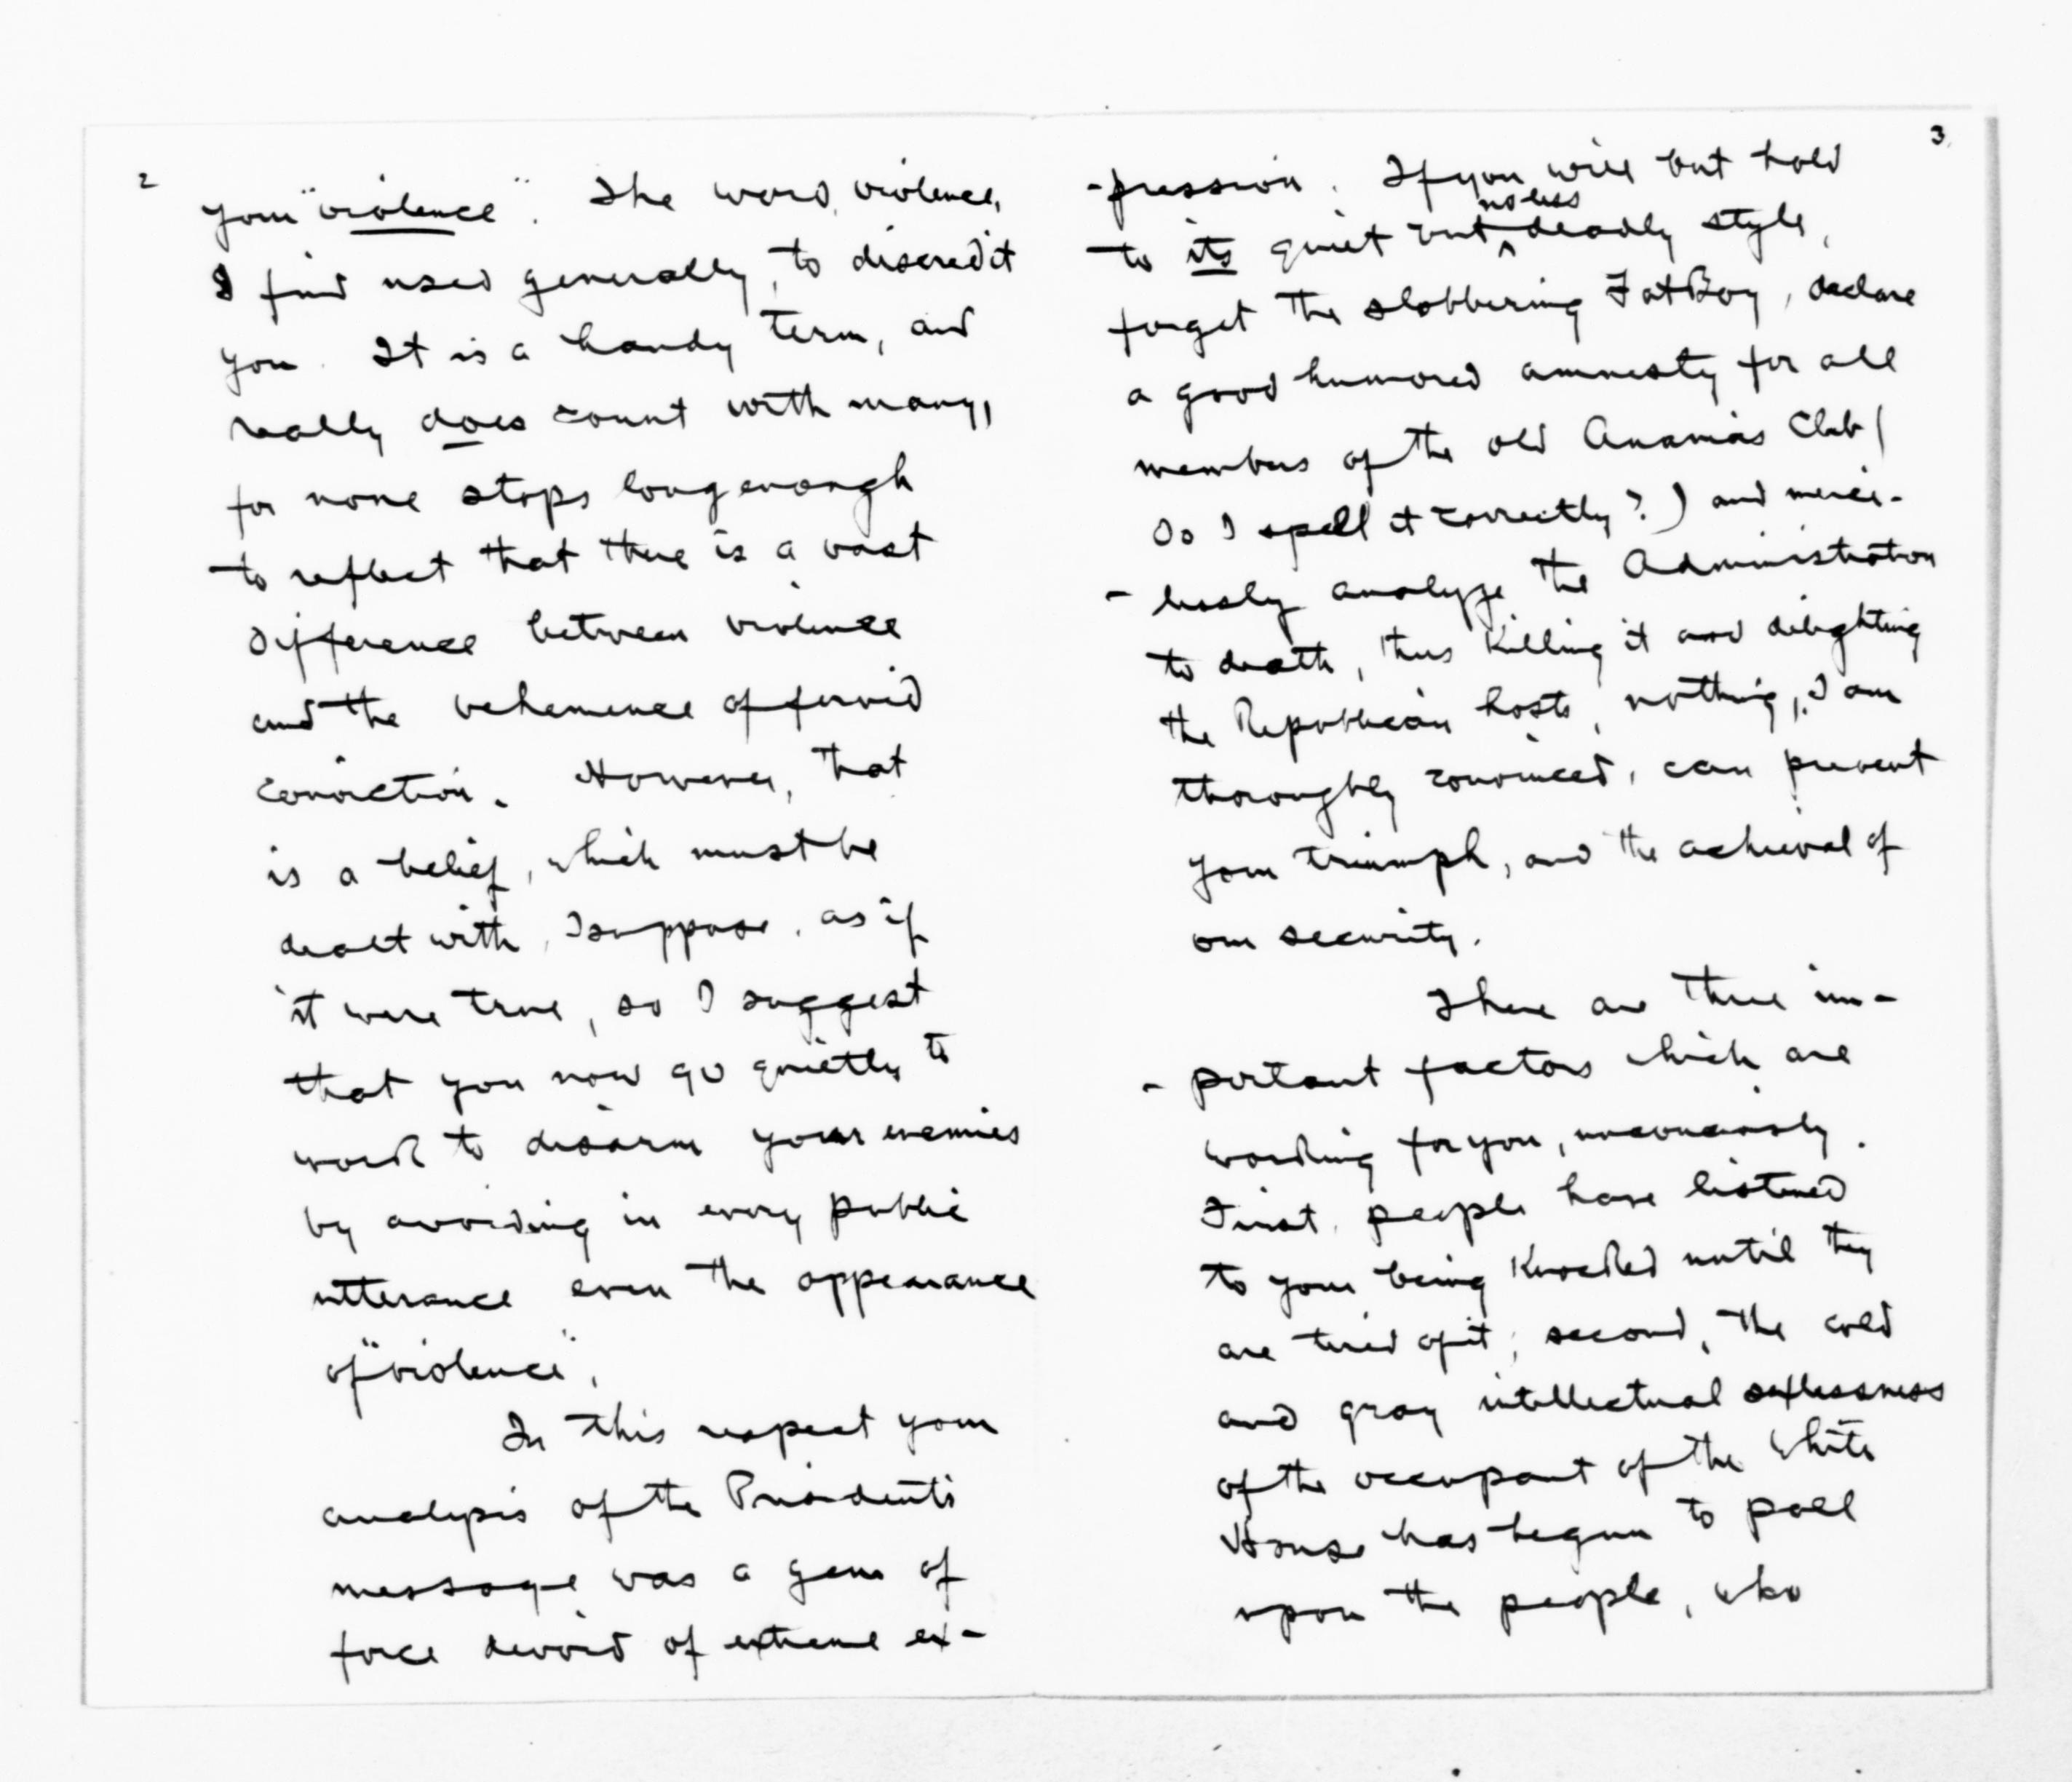 2
your "violence". The word, violence,
I find used generally, to discredit
you. It is a handy term, and
really does count with many,
for none stops long enough
to reflect that there is a vast
difference between violence
and the vehemence of fervid
conviction. However, that
is a belief, which must be
dealt with, I suppose, as if
it were true, so I suggest
that you now go quietly to
work to disarm your enemies
by avoiding in every public
utterance even the appearance
of "violence".
In this respect your
analysis of the President's
message was a gem of
force devoid of extreme ex-
3.
-pression. If you will but hold
no less
to its quiet but deadly style,
forget the slobbering Fat Boy, declare
a good humored amnesty for all
members of the old Ananias Club (
Do I spell it correctly?) and merci-
- lessly analyze the Administration
to death, thus killing it and delighting
the Republican hosts, nothing, I am
thoroughly convinced, can prevent
your triumph, and the achieval of
our security.
There are three im-
- portant factors which are
working for you, unconciously.
First, people have listened
to your being knocked until they
are tired of it; second, the cold
and gray intellectual selflessness
of the occupant of the White
House has begun to pall
upon the people, who